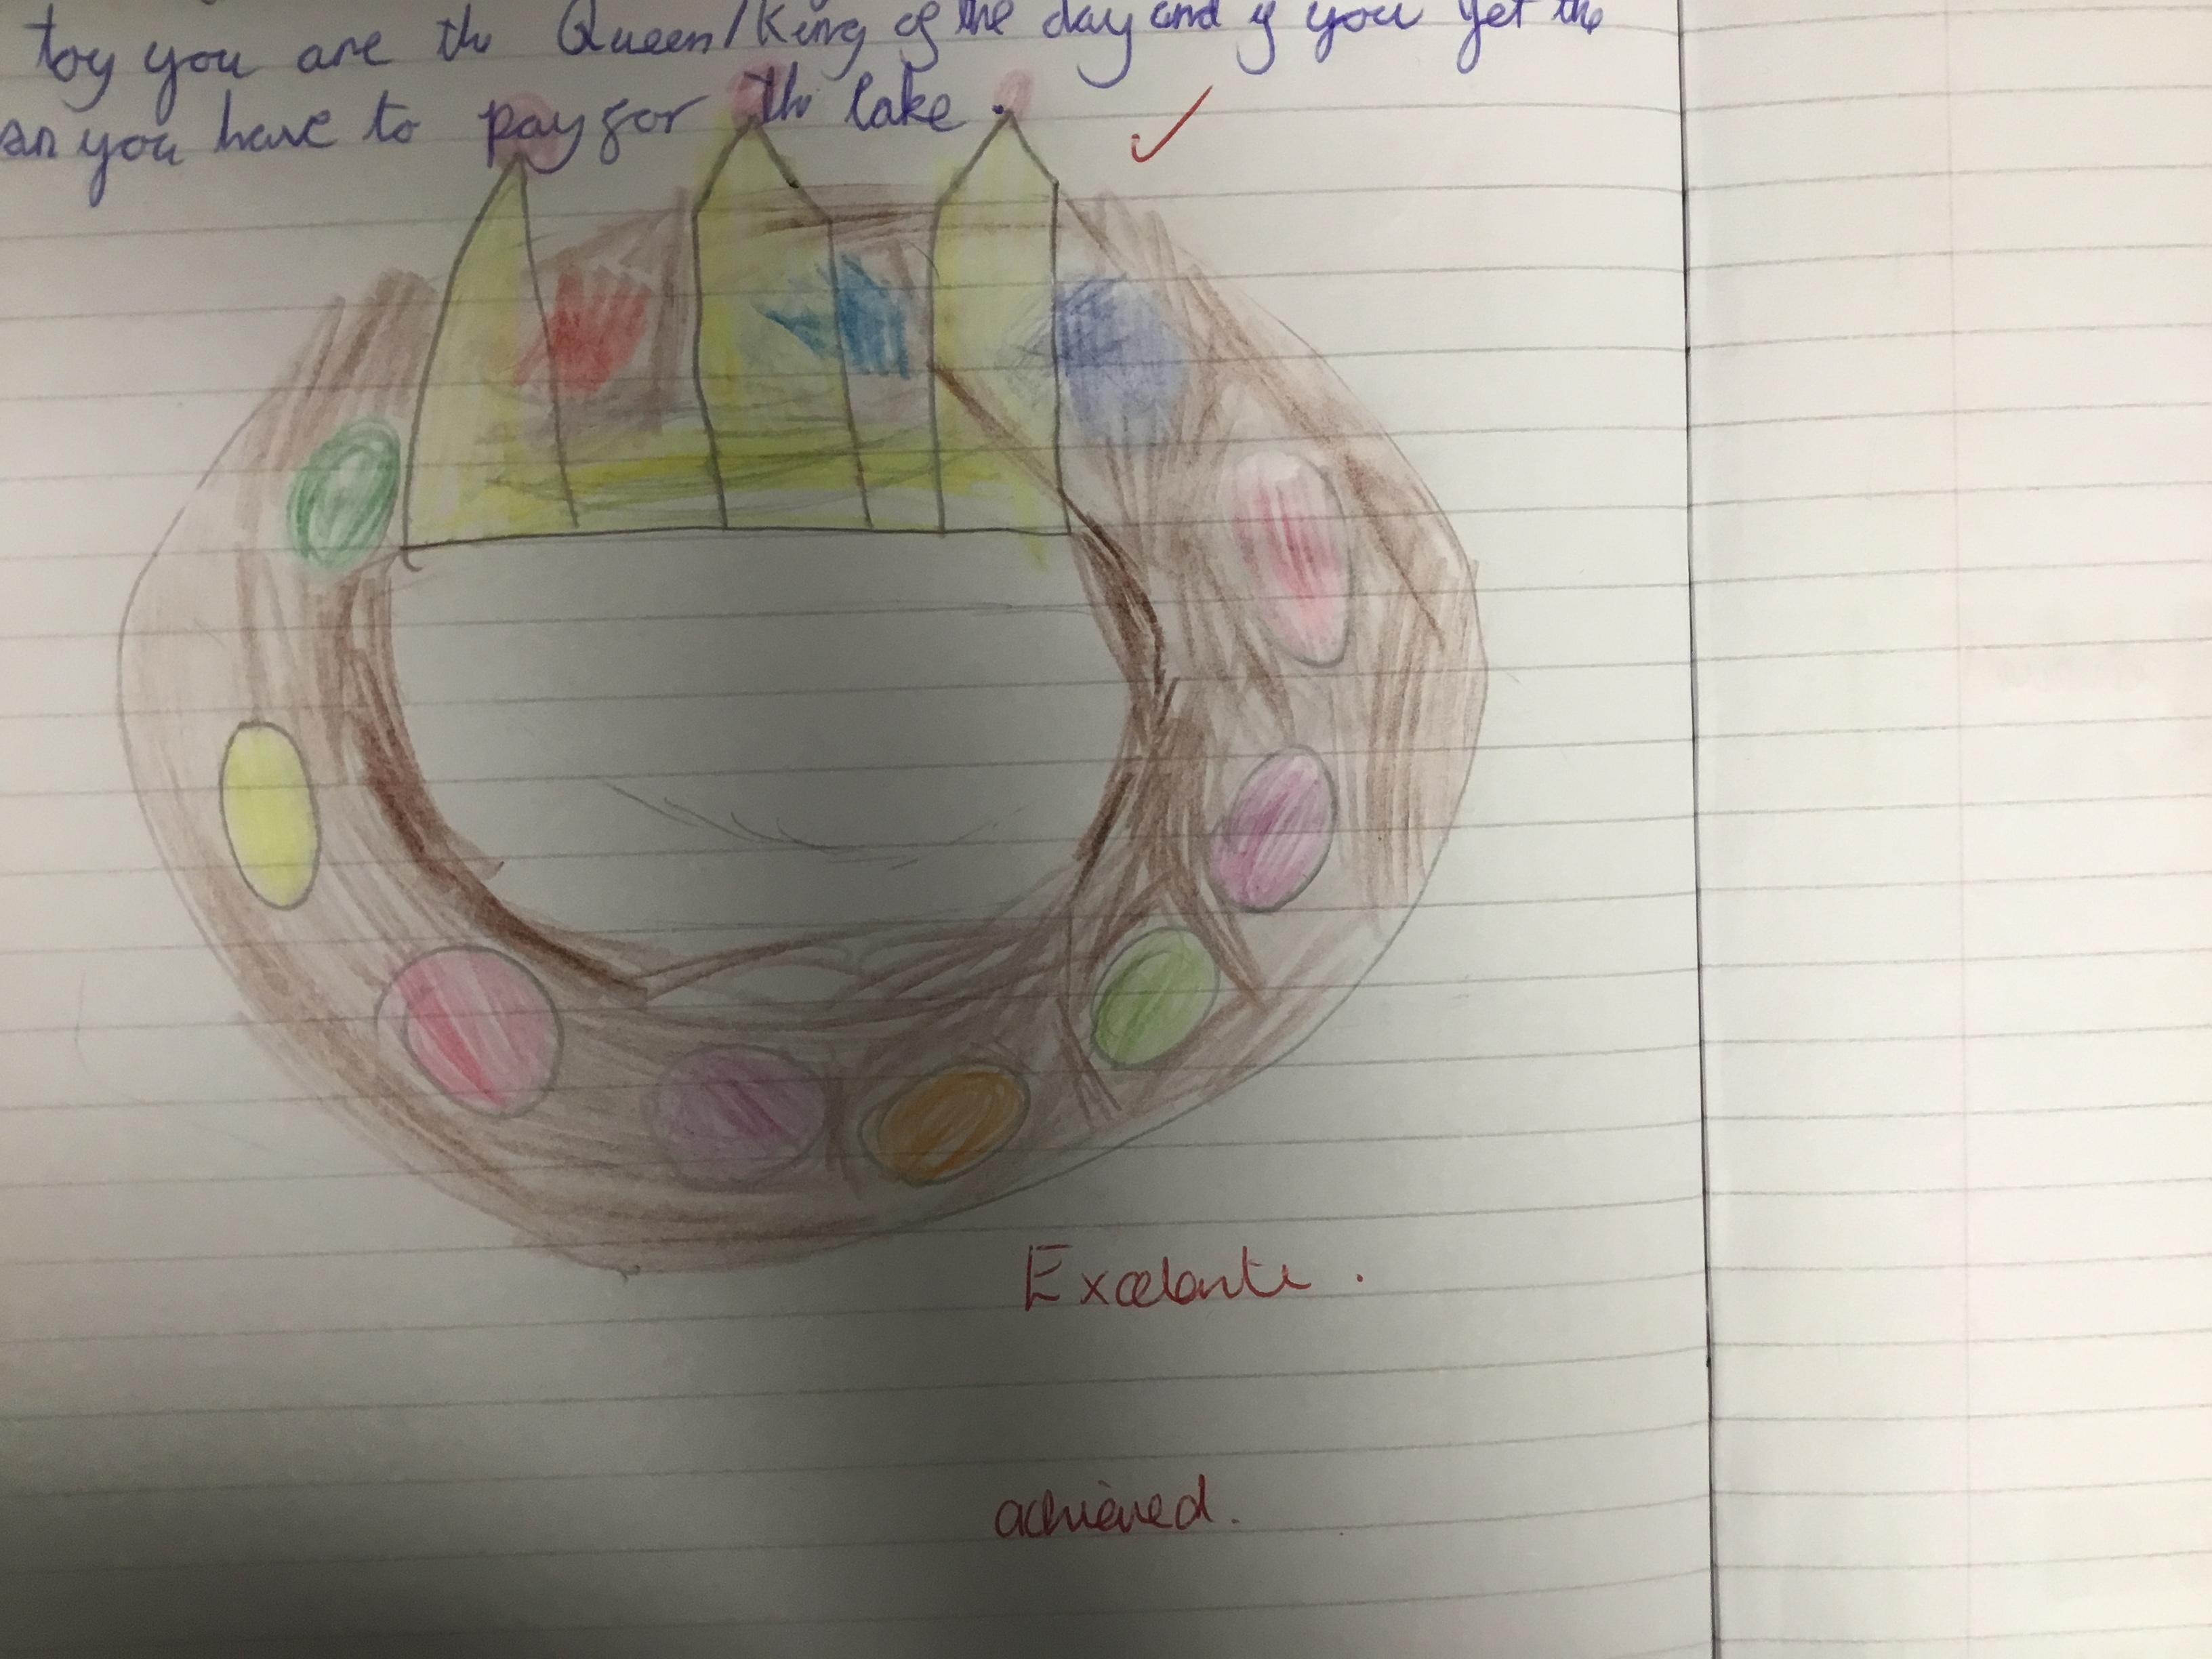 toy you are the Queen/King of the day and if you get the
an you have to pay for the cake.
Excelente.
achieved.